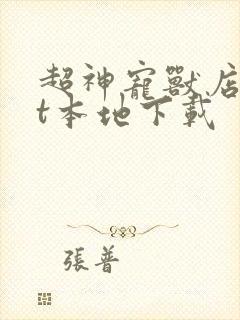 超神寵獸店
t本地下載
張普